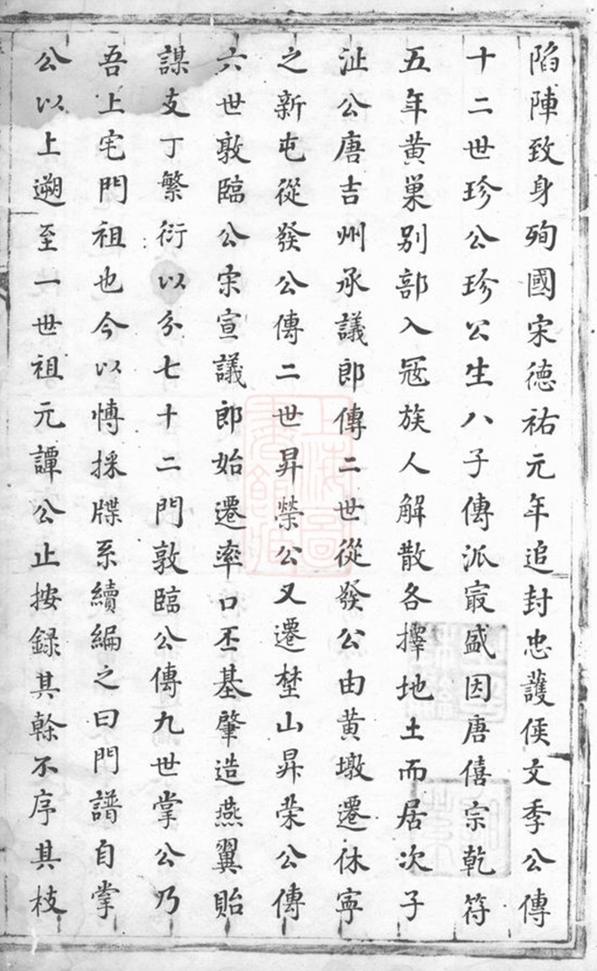 陷陣致身殉國宋德祐元年追封忠護侯文季公傳
十二世珍公珍公生八子傳派㝡盛因唐僖宗乾符
五年黃巢别部入冦族人解散各擇地土而居次子
沚公唐吉州承議郎傳二世從發公由黃墩遷休寧
之新屯從發公傳二世昇榮公又遷埜山昇荣公傳
六世敦臨公宋宣議郎始遷率口丕基肇造燕翼貽
謀支丁繁衍以分七十二門敦臨公傳九世掌公乃
吾上宅門祖也今以慱採牒系續編之曰門譜自掌
公以上遡至一世祖元譚公止按録其榦不序其枝
上海圖書館藏